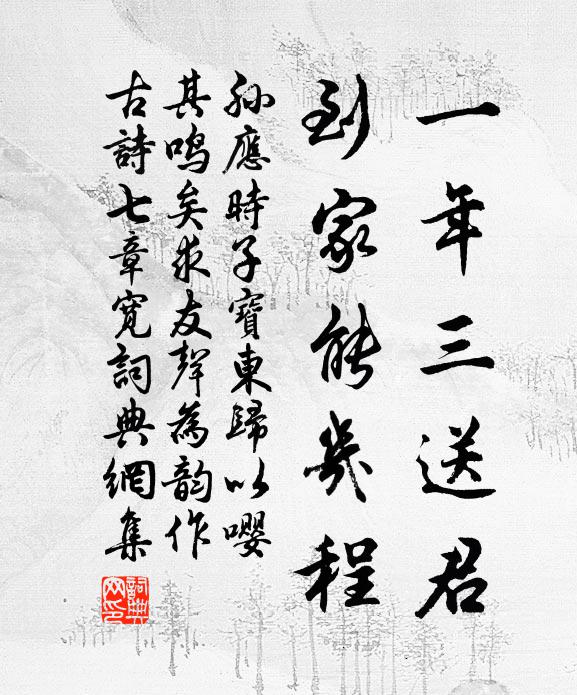 一年三送君
到家能幾程
孫應時子寶東歸以嚶
其鳴矣求友聲為韵作
古詩七章寬詞典網集
詞典网印